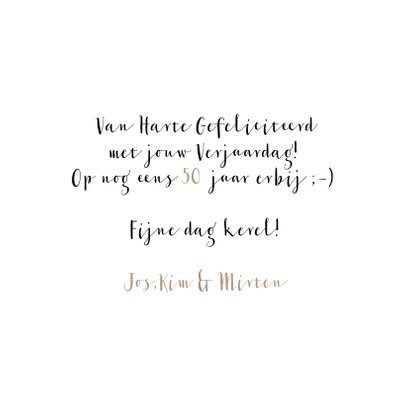 Van Harte Gefeliciteerd
met jouw Verjaardag!
Op nog eens 50 jaar erbij ;-)
Fijne dag kerel!
Jos, Kim & Mirten